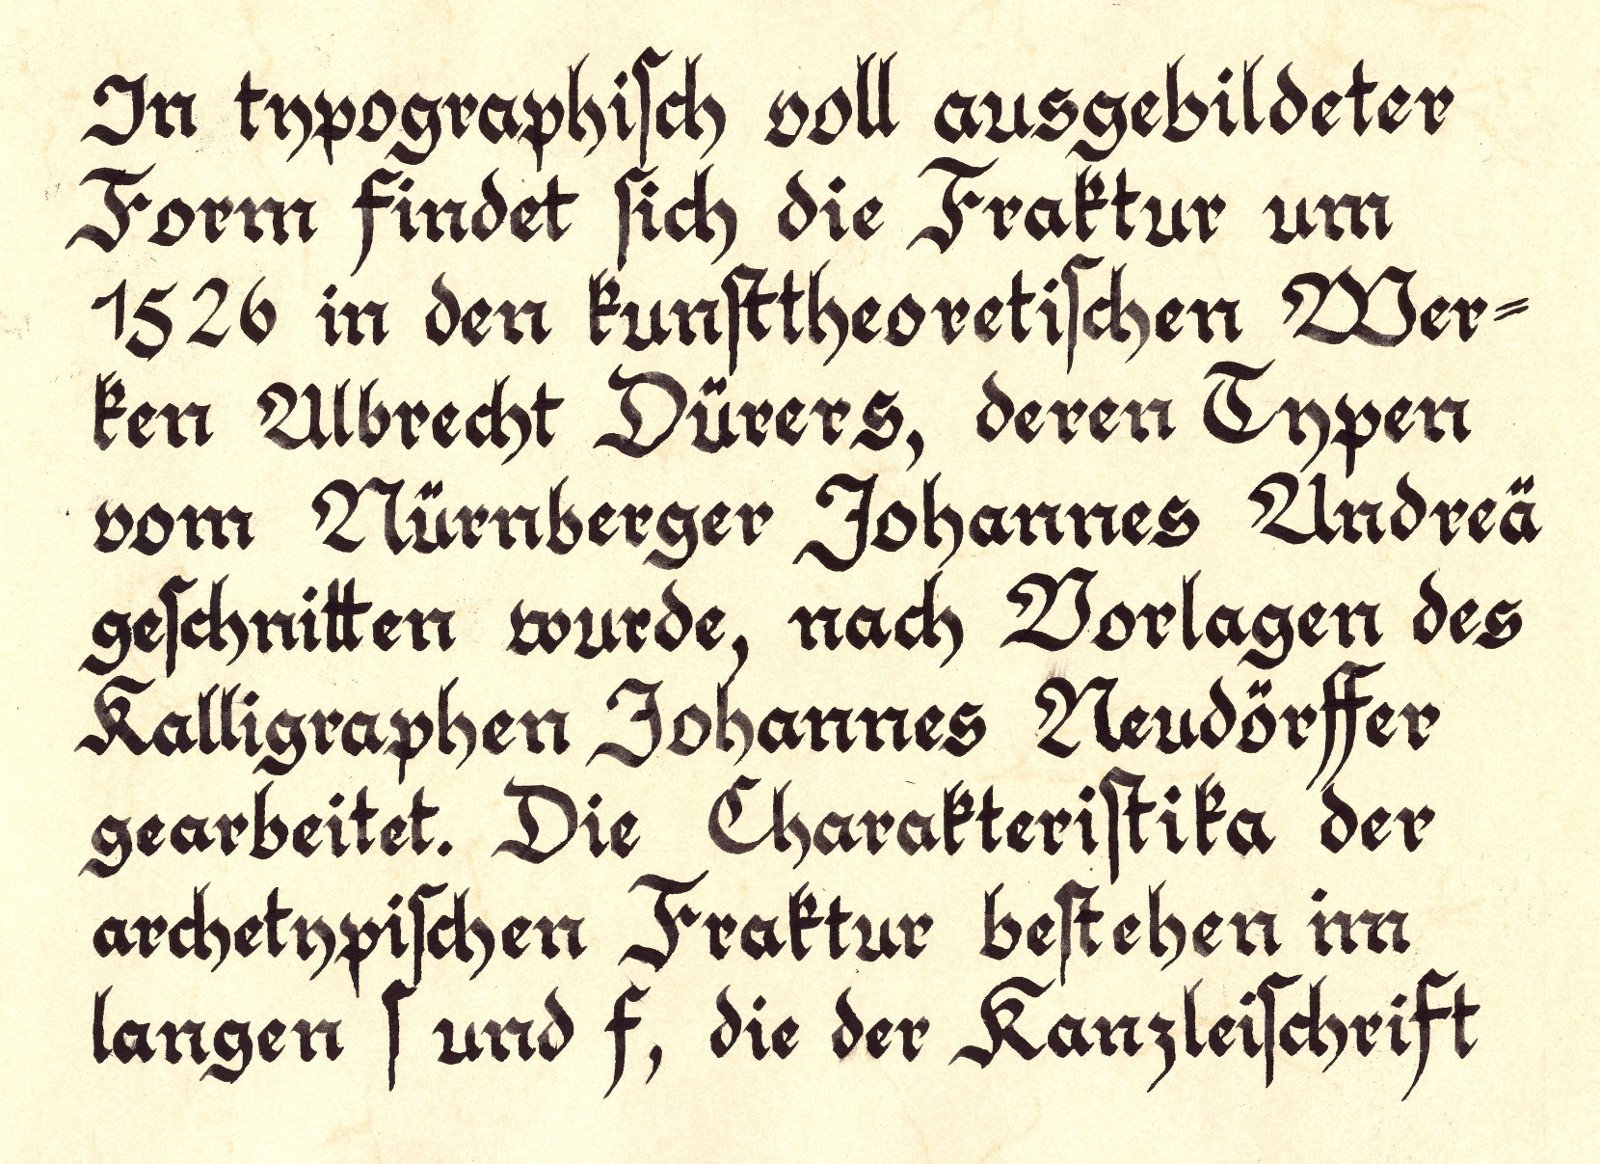 In typographiſch voll ausgebildeter
Form findet ſich die Fraktur um
1526 in den kunſttheoretiſchen Wer⸗
ken Albrecht Dürers, deren Typen
vom Nürnberger Johannes Andreä
geſchnitten wurde, nach Vorlagen des
Kalligraphen Johannes Neudörffer
gearbeitet. Die Charakteriſtika der
archetypiſchen Fraktur beſtehen im
langen ſ und f, die der Kanzleiſchrift